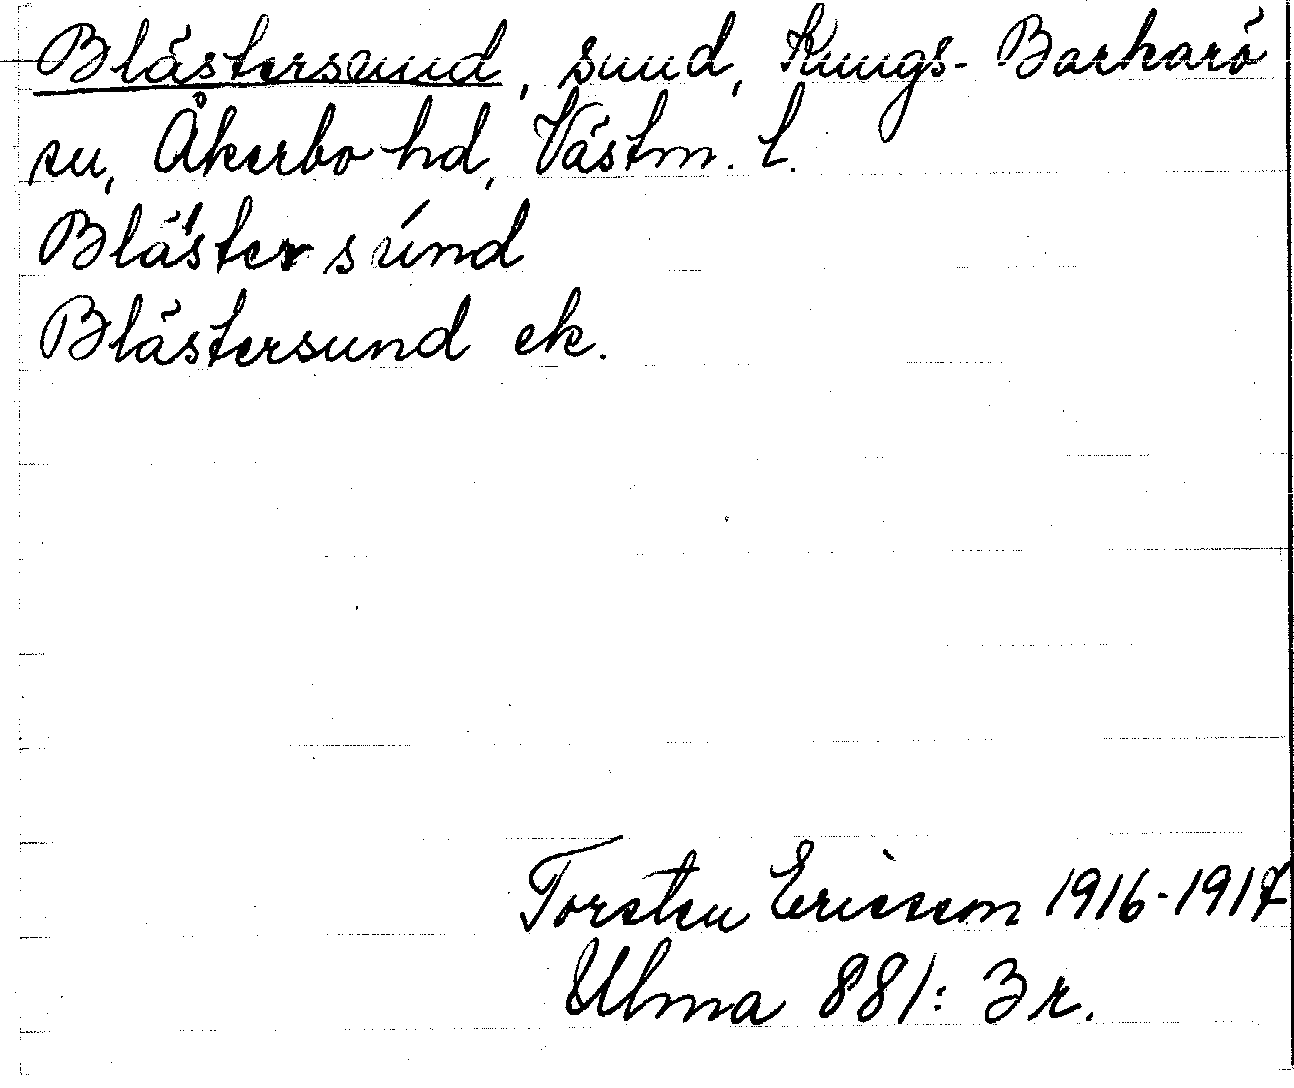 Blästersund, sund, Kungs-Barkarö
sn, Åkerbo hd, Västm. l.
Blä´stersúnd
Blästersund ek.
Torsten Ericsson 1916-1917
Ulma 881: 3 r.